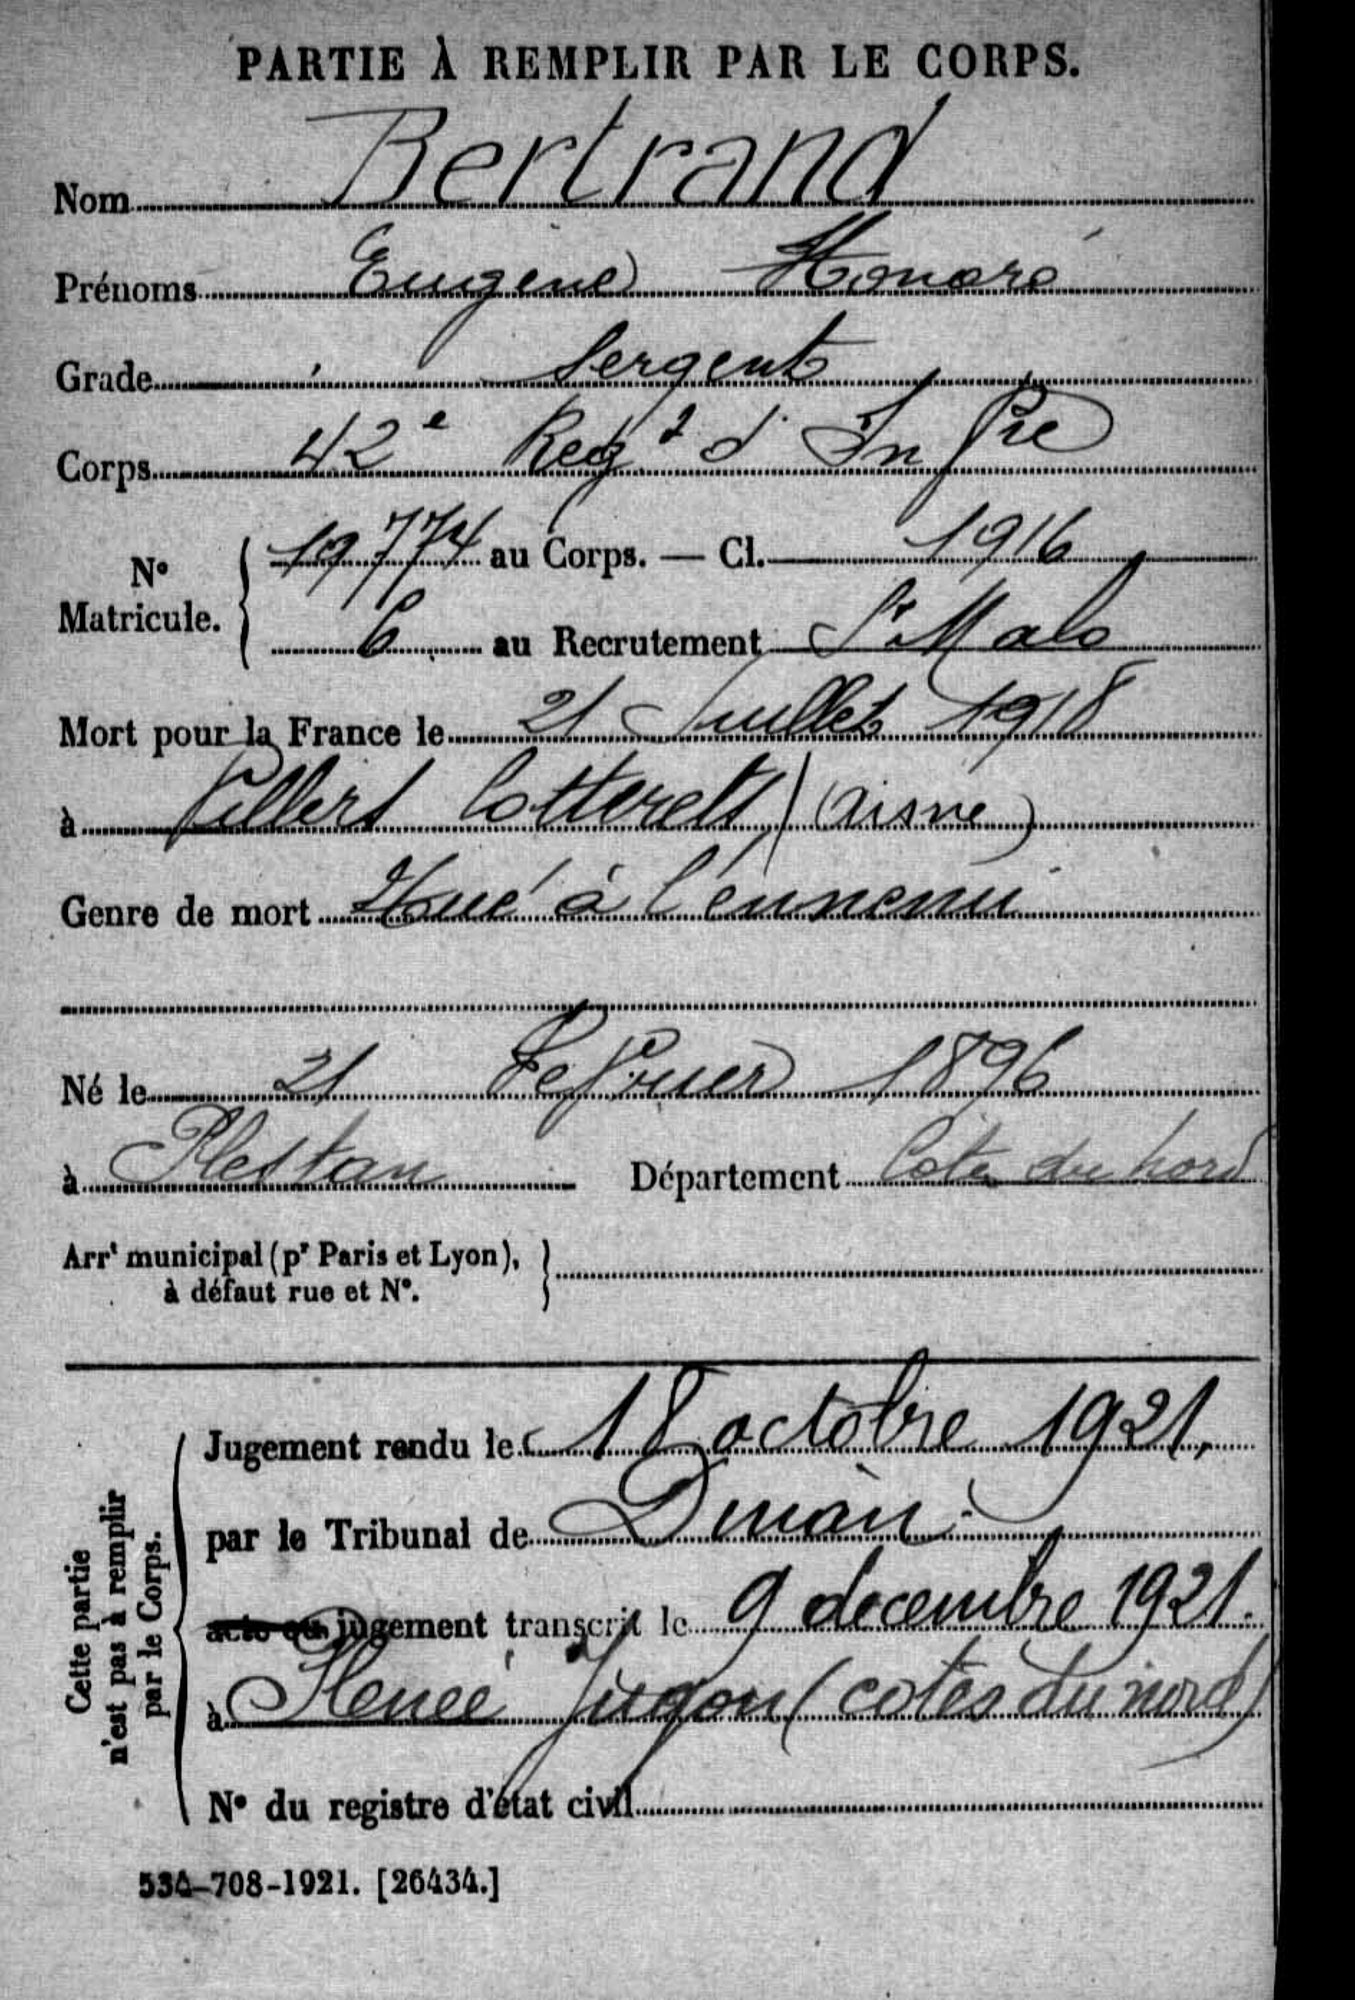 PARTIE À REMPLIR PAR LE CORPS.
Nom Bertrand
Prénoms Eugène Honoré
Grade Sergent
Corps 42e Regt d'Infie
N° Matricule. { 19774 au Corps. — Cl. 1916
6 au Recrutement St Malo
Mort pour la France le 21 Juillet 1918
à Villers Cotterets (Aisne)
Genre de mort Tué à l'ennemi
Né le 21 Fevrier 1896
à Plestan Département Côtes du Nord
Arrt municipal (pr Paris et Lyon), }
à défaut rue et N°.
Cette partie n'est pas à remplir par le Corps.
Jugement rendu le 18 octobre 1921.
par le Tribunal de Dinan
acte ou jugement transcrit le 9 decembre 1921.
à Plénée Jugon (cotes du nord)
N° du registre d'état civil
534-708-1921. [26434.]